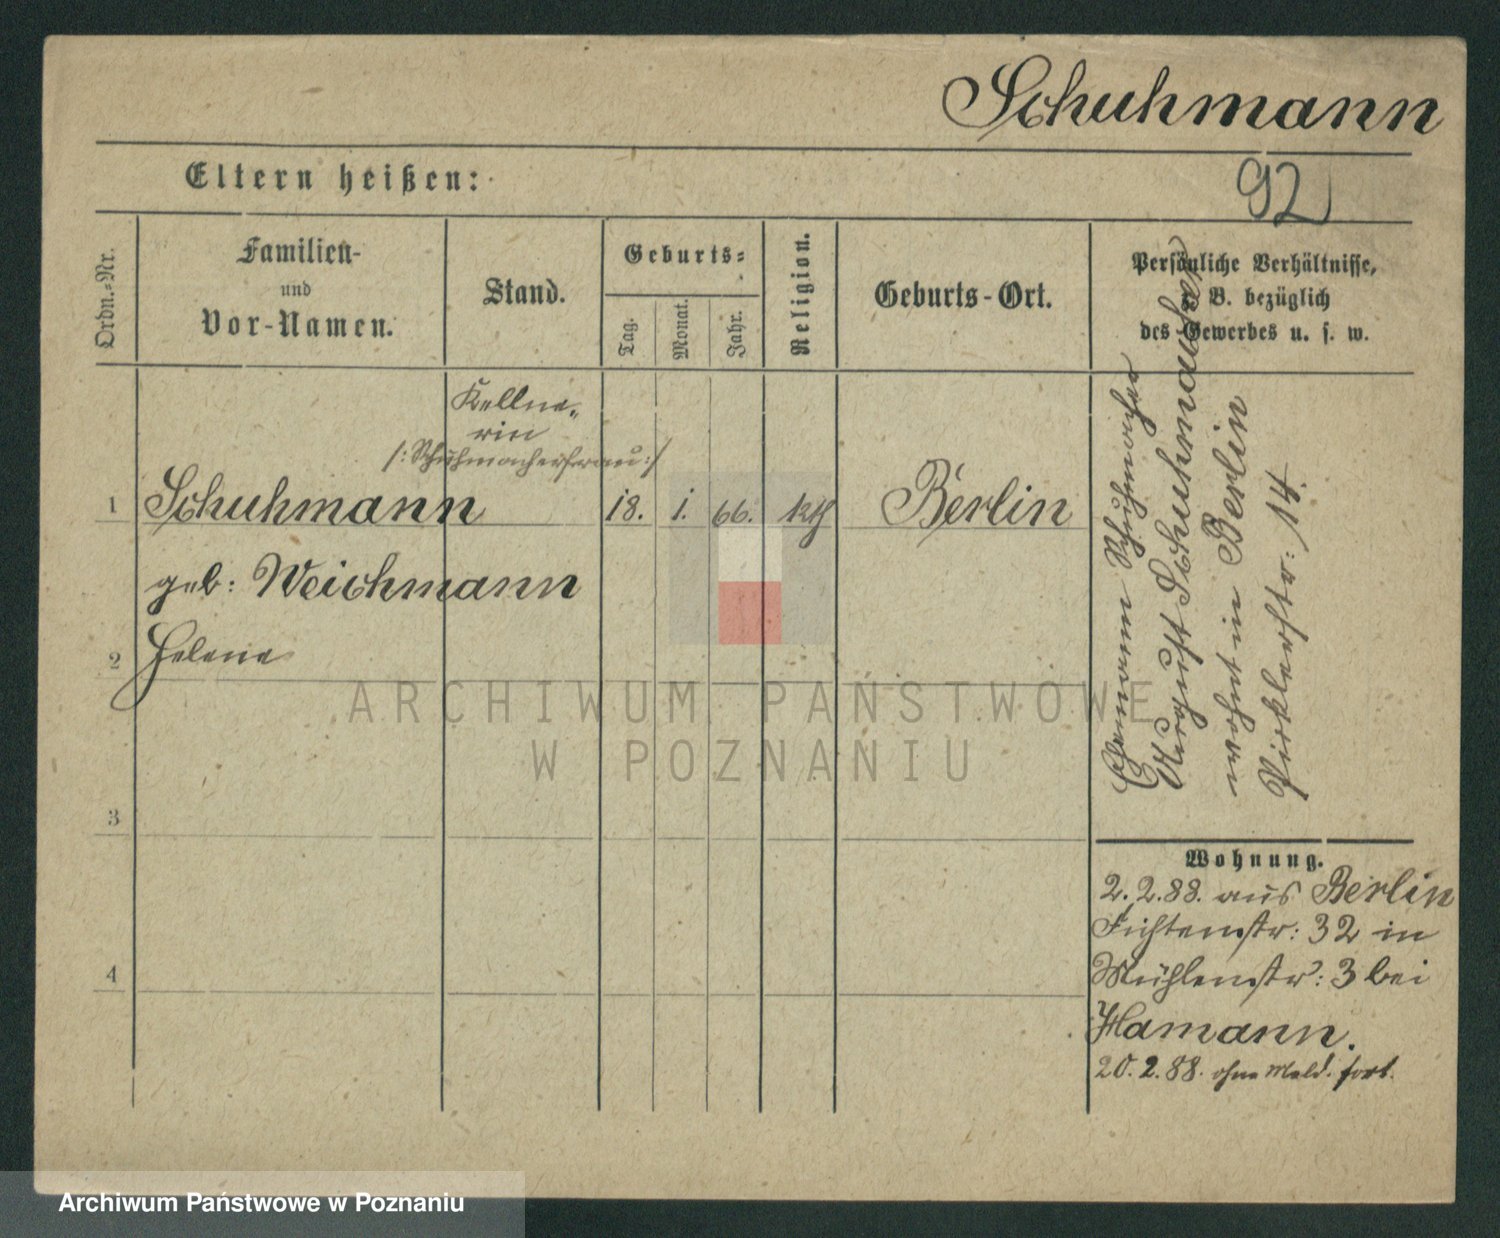 Schuhmann
92
Eltern heißen:
Ordn.-Nr.
Familien-
und
Vor-Namen.
Stand.
Geburts-
Tag.
Monat.
Jahr.
Religion.
Geburts-Ort.
Persönliche Verhältnisse,
z. B. bezüglich
des Gewerbes u. s. w.
Kellne-
rin
/: Schuhmacherfrau :/
1 Schuhmann 18. 1. 66. Berlin
geb: Weichmann
2 Helene
3
4
Ehemann Schuhmacher
August Schuhmacher
wohnt in Berlin
14.
Wohnung.
2.2.88. aus Berlin
Fichtenstr: 32 in
Mühlenstr: 3 bei
Hamann.
20.2.88. ohne Meld. fort.
ARCHIWUM PAŃSTWOWE
W POZNANIU
Archiwum Państwowe w Poznaniu